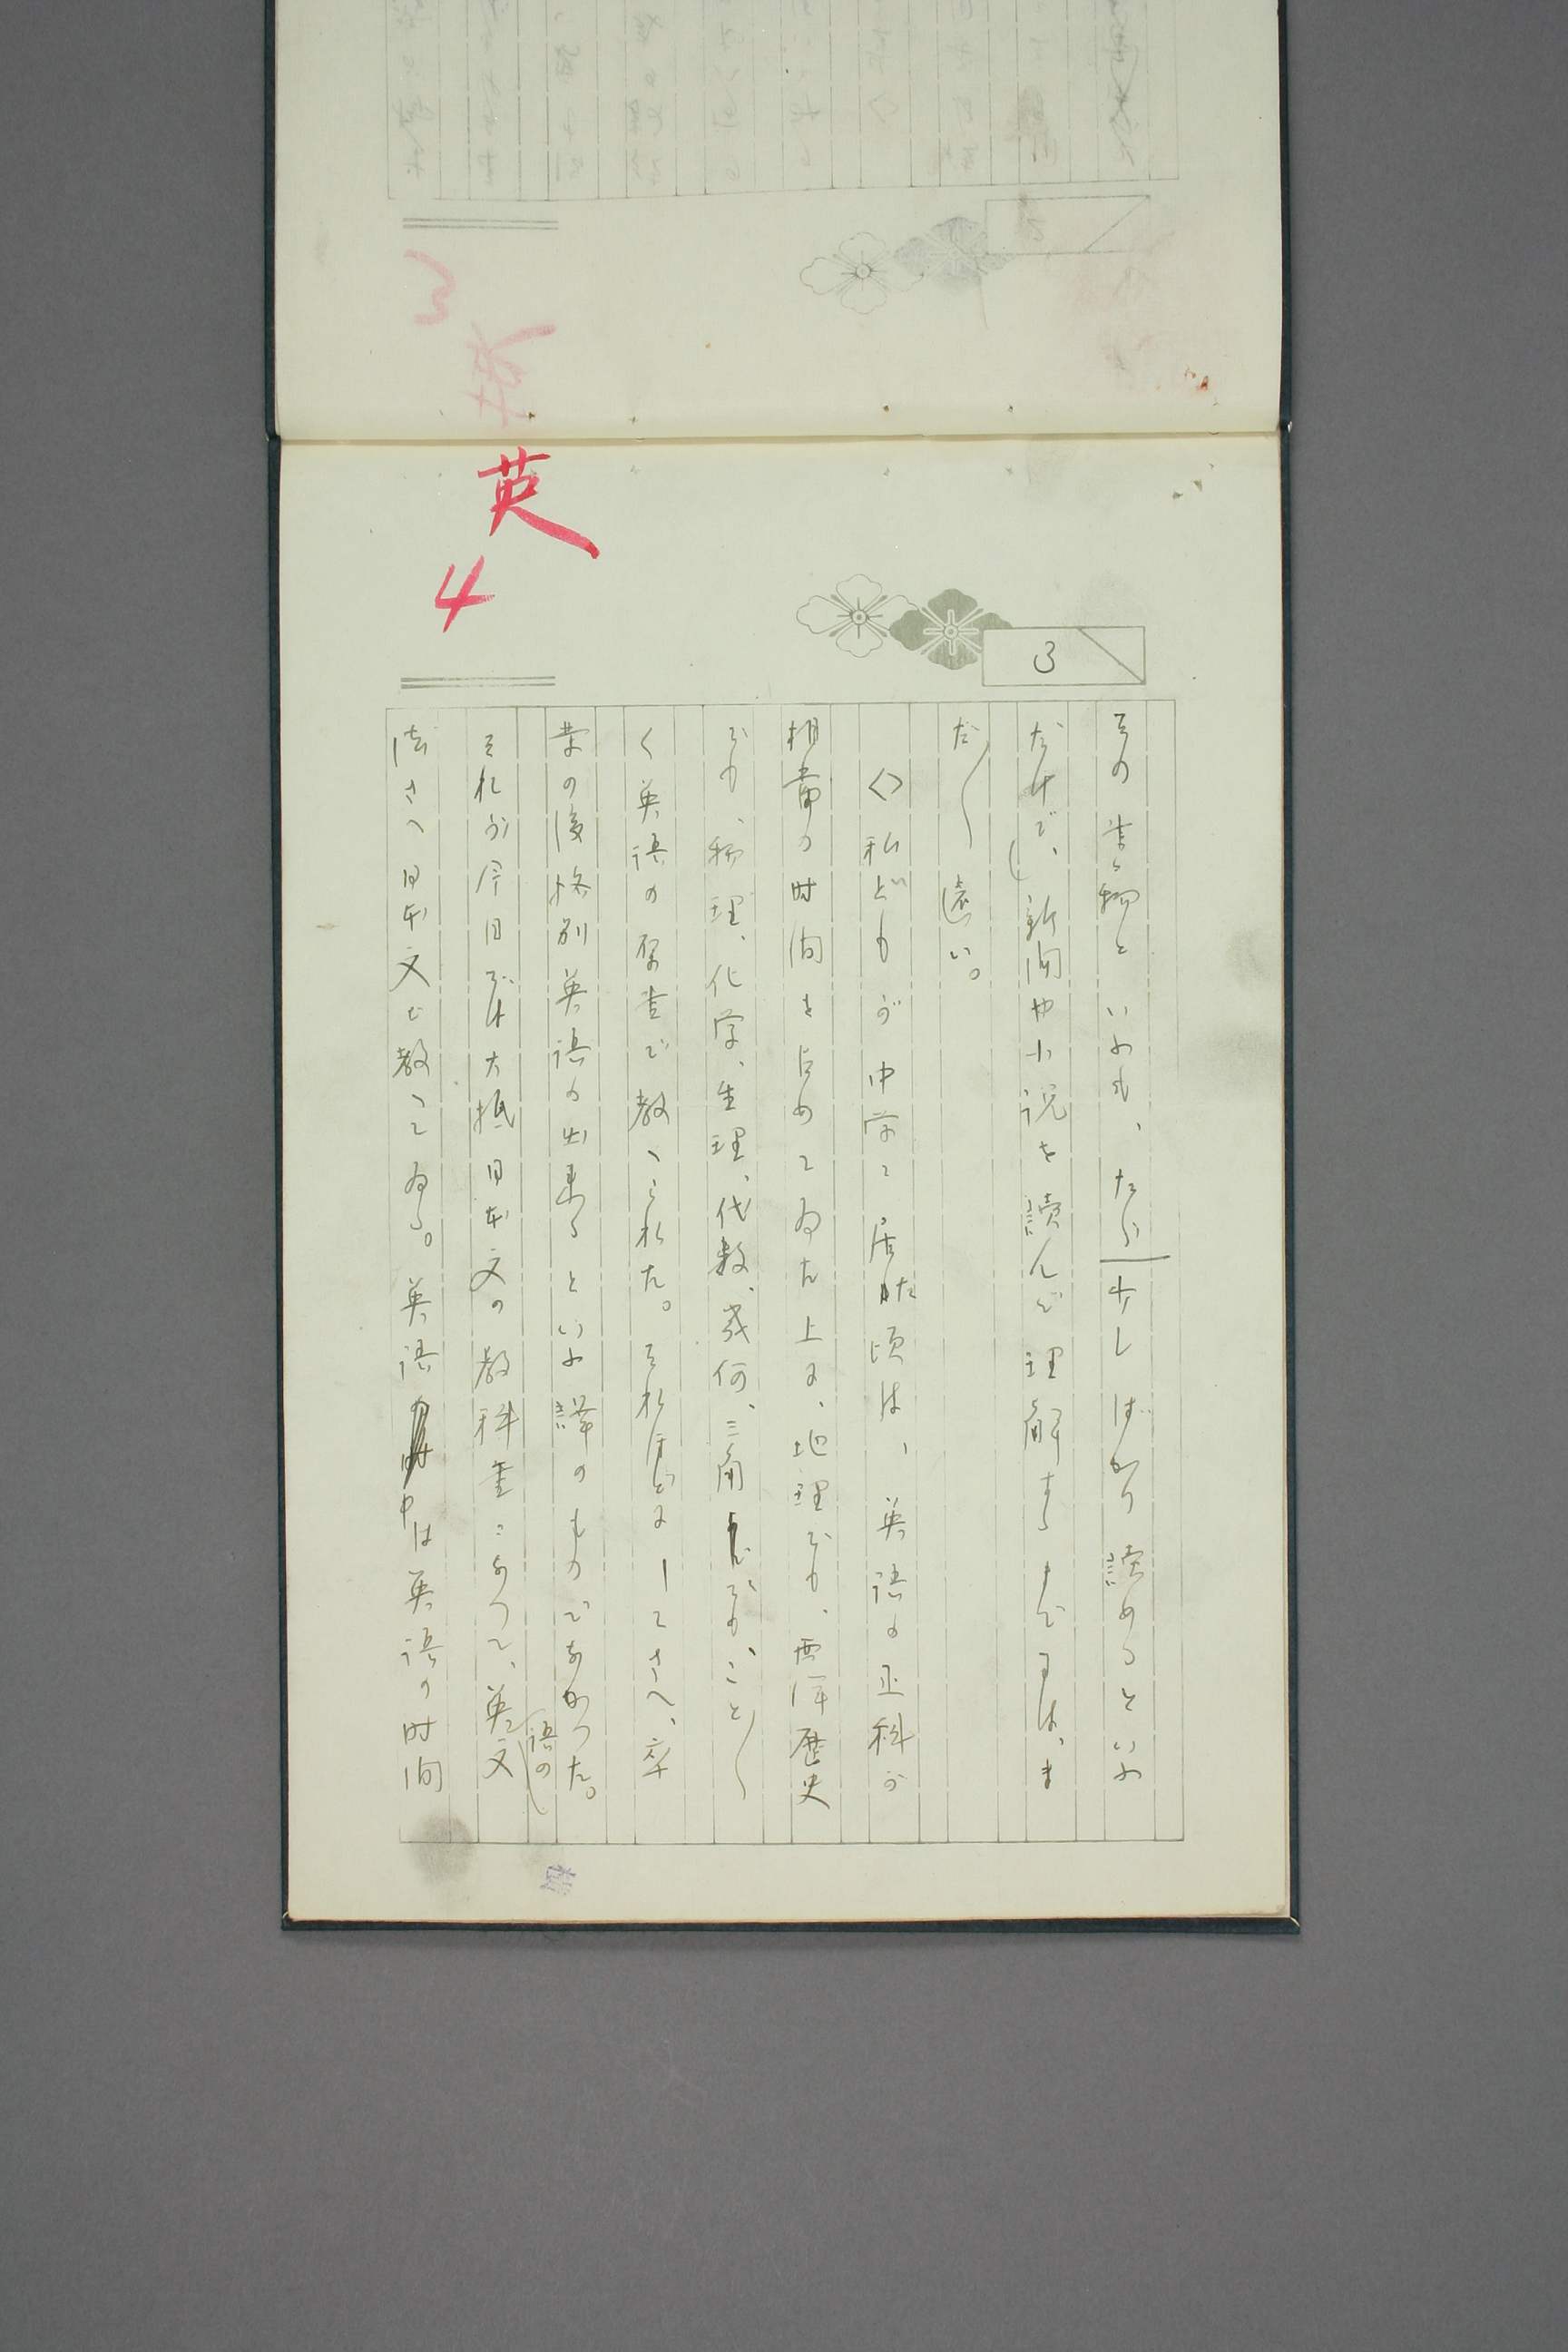 英
4
3
その書物といふも、たゞ少しばかり読めるといふ
だけで、新聞や小説を讀んで理解するまでには、ま
だ〱遠い。
私どもが中学に居た頃は、英語の正科が
相當の時間を占めてゐた上に、地理でも、西洋歴史
でも、物理、化学、生理、代数、幾何、三角でも、こと〲
く英語の原書で教へられた。それほどにしてさへ、卒
業の後格別英語の出来るといふ譯のものでなかつた。
それが今日では大抵日本文の教科書になつて、英文
語の
法さへ日本文で教へてゐる。英語は英語の時間